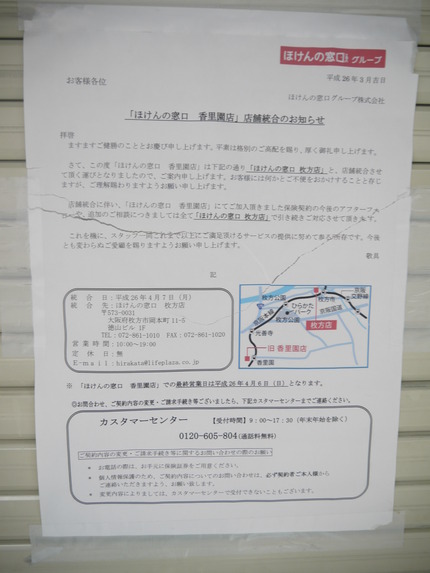 ほけんの窓口グループ
平成26年3月吉日
お客様各位
ほけんの窓口グループ株式会社
「ほけんの窓口 香里園店」店舗統合のお知らせ
拝啓
ますますご健勝のこととお慶び申し上げます。平素は格別のご高配を賜り、厚く御礼申し上げます。
さて、この度「ほけんの窓口 香里園店」は下記の通り「ほけんの窓口 枚方店」と、店舗統合させ
て頂く運びとなりましたので、ご案内申し上げます。お客様には何かとご不便をおかけすることと存じ
ますが、ご理解賜わりますようお願い申し上げます。
店舗統合に伴い、「ほけんの窓口 香里園店」にてご加入頂きました保険契約の今後のアフターフォ
ローや、追加のご相談につきましては全て「ほけんの窓口 枚方店」で引き続きご対応させて頂きます。
これを機に、スタッフ一同これまで以上にご満足頂けるサービスの提供に努めて参る所存です。今後
とも変わらぬご愛顧を賜りますようお願い申し上げます。
敬具
記
統合日:平成26年4月7日(月)
統合先:ほけんの窓口 枚方店
〒573-0031
大阪府枚方市岡本町11-5
徳山ビル1F
TEL:072-861-1010 FAX:072-861-1020
営業時間:10:00~19:00
定休日:無
E-mail:hirakata@lifeplaza.co.jp
枚方公園
枚方市
京阪交野線
ひらかたパーク
京阪本線
京阪国道
枚方公園
枚方店
光善寺
旧 香里園店
香里園
※ 「ほけんの窓口 香里園店」での最終営業日は平成26年4月6日(日)となります。
◎お問合わせ、ご契約内容の変更・ご請求手続き等ございましたら、下記カスタマーセンターまでご連絡ください。
カスタマーセンター 【受付時間】9:00~17:30(年末年始を除く)
0120-605-804(通話料無料)
ご契約内容の変更・ご請求手続き等に関するお問い合わせの際のお願い
• お電話の際は、お手元に保険証券をご用意ください。
• 個人情報保護のため、ご契約内容についてのお問い合わせは、必ず契約者ご本人様から
ご連絡いただきますよう、お願い致します。
• 変更内容によりましては、カスタマーセンターで受付できないこともございます。